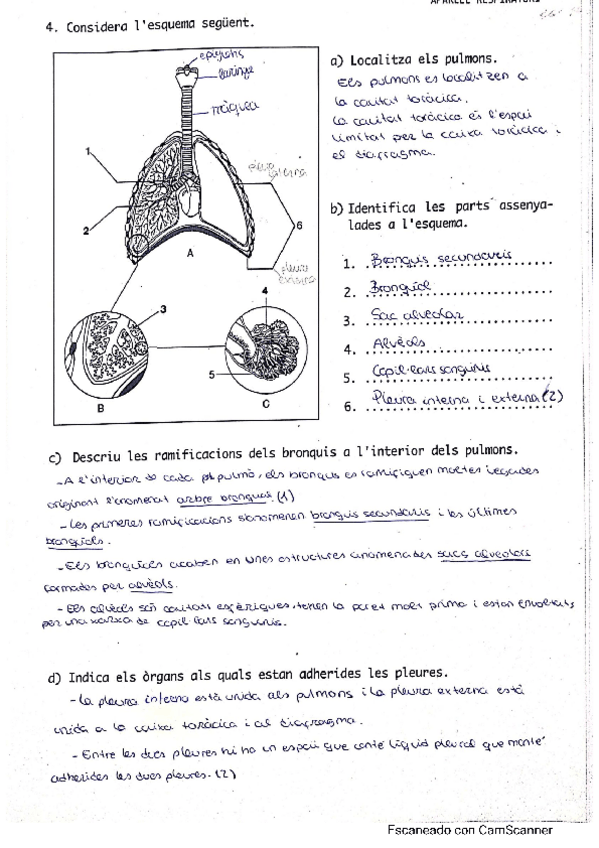 APARELL RESPIRATORI
4. Considera l'esquema següent.
epiglotis
laringe
tràquea
pleura interna
1
2
6
A
pleura externa
4
3
5
B
C
a) Localitza els pulmons.
Els pulmons es localitzen a
la cavitat toràcica.
La cavitat toràcica és l'espai
limitat per la caixa toràcica i
el diafragma.
b) Identifica les parts assenya-
lades a l'esquema.
1. Bronquis secundaris
2. Bronquíol
3. Sac alveolar
4. Alvèols
5. Capil·lars sanguinis
6. Pleura interna i externa (2)
c) Descriu les ramificacions dels bronquis a l'interior dels pulmons.
- A l'interior de cada pulmó, els bronquis es ramifiquen moltes vegades
originant l'anomenat arbre bronquial. (1)
- Les primeres ramificacions s'anomenen bronquis secundaris i les últimes
bronquíols.
- Els bronquíols acaben en unes estructures anomenades sacs alveolars
formades per alvèols.
- Els alvèols són cavitats esfèriques, tenen la paret molt prima i estan envoltats
per una xarxa de capil·lars sanguinis.
d) Indica els òrgans als quals estan adherides les pleures.
- La pleura interna està unida als pulmons i la pleura externa està
unida a la caixa toràcica i al diafragma.
- Entre les dues pleures hi ha un espai que conté líquid pleural que manté
adherides les dues pleures. (2)
Escaneado con CamScanner